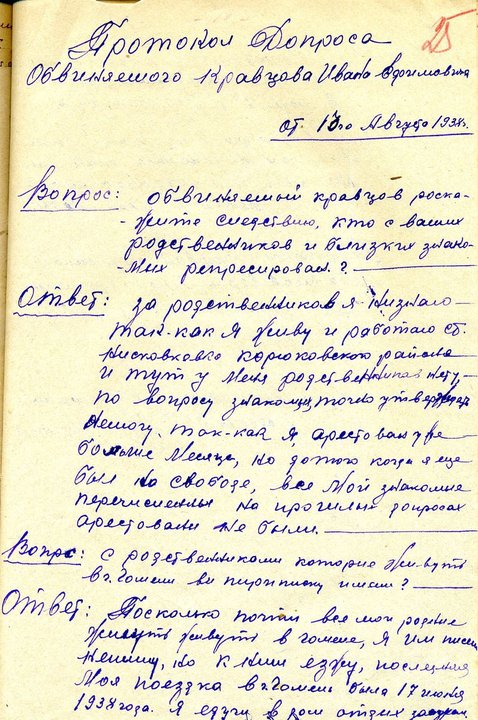 25
Протокол Допроса
Обвиняемого Кравцова Ивана
от 10го Августа 1938г.
Вопрос: Обвиняемый кравцов роска-
-жите следствию, кто с ваших
родственников и близких знако-
-мых репресирован?
Ответ: за родственников я низнаю
так-как я живу и работаю ст.
корюковского района
и тут у меня родственников нету,
по вопросу знакомых точно
немогу. так-как я арестован уже
больше месяца, но дотого когда я еще
был на свободе, все мои знакомые
перечисленны на прошлых допросах
арестованы не были.
Вопрос: с родственниками которие живуть
в г. Гомели ви пириписку имели?
Ответ: Посколько почти все мои родние
живуть в гомеле, я им
непишу, но к ним езжу, последняя
Моя поездка в г. Гомель была 17 июня
1938 года. Я едучи в дом отдих